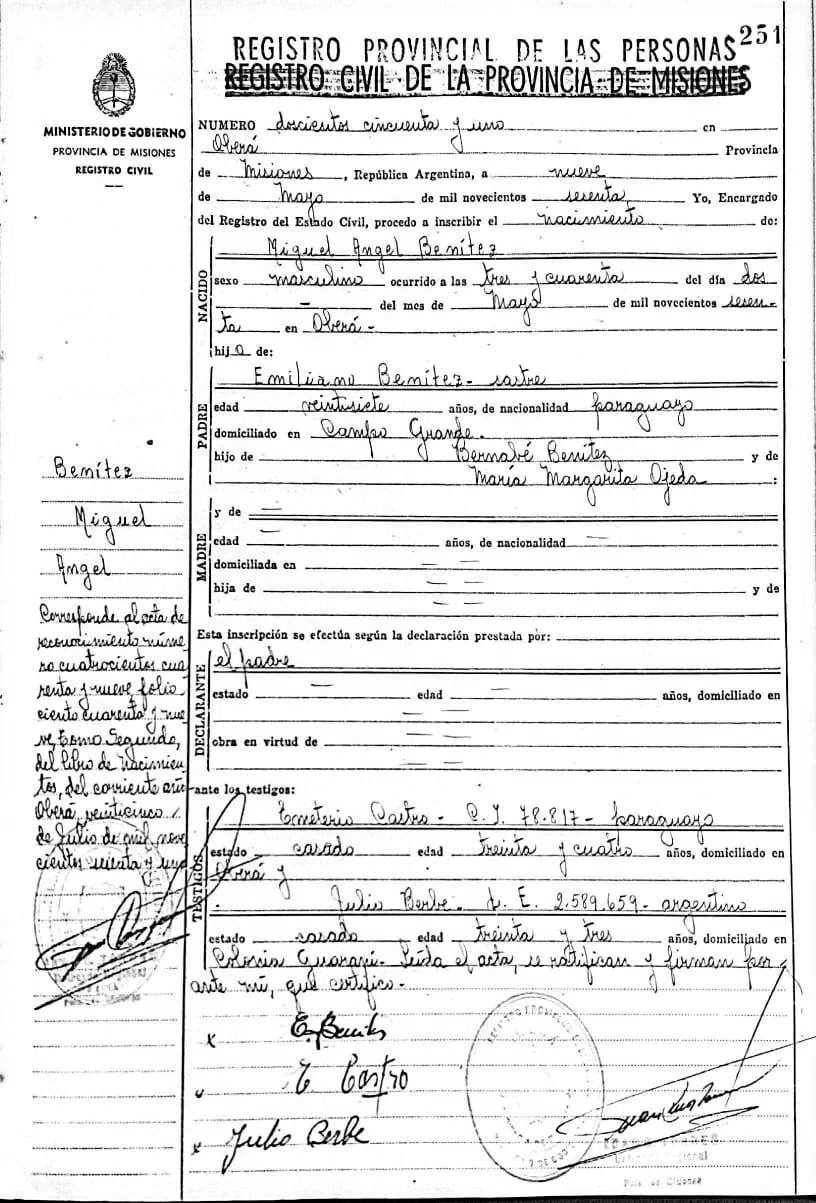 251
REGISTRO PROVINCIAL DE LAS PERSONAS
REGISTRO CIVIL DE LA PROVINCIA DE MISIONES
MINISTERIO DE GOBIERNO
PROVINCIA DE MISIONES
REGISTRO CIVIL
NUMERO doscientos cincuenta y uno en
Oberá Provincia
de Misiones, República Argentina, a nueve
de Mayo de mil novecientos sesenta Yo, Encargado
del Registro del Estado Civil, procedo a inscribir el nacimiento de:
NACIDO
Miguel Angel Benítez
sexo masculino ocurrido a las tres y cuarenta del día dos
— del mes de Mayo de mil novecientos sesen-
ta en Oberá -
hijo de:
PADRE
Emiliano Benítez - sastre
edad veintisiete años, de nacionalidad paraguayo
domiciliado en Campo Grande.
hijo de Bernabé Benítez y de
María Margarita Ojeda :
MADRE
y de —
edad — años, de nacionalidad —
domiciliada en — —
hija de — — y de
— —
Esta inscripción se efectúa según la declaración prestada por:
DECLARANTE
el padre
estado — edad — años, domiciliado en
— —
obra en virtud de — —
ante los testigos:
TESTIGOS
Emeterio Castro - C. I. 78.817 - paraguayo
estado casado edad treinta y cuatro años, domiciliado en
Oberá y
Julio Berbe - L. E. 2.589.659 - argentino
estado casado edad treinta y tres años, domiciliado en
Colonia Guaraní - Leída el acta, se ratifican y firman por
ante mí, que certifico -
x E. Benítez
E Castro
x Julio Berbe
Benítez
Miguel
Angel
Corresponde al acta de
reconocimiento núme
ro cuatrocientos cua
renta y nueve, folio
ciento cuarenta y nue
ve, tomo Segundo,
del libro de Nacimien
tos, del corriente año
Oberá, veinticinco
de Julio de mil nove
cientos sesenta y uno